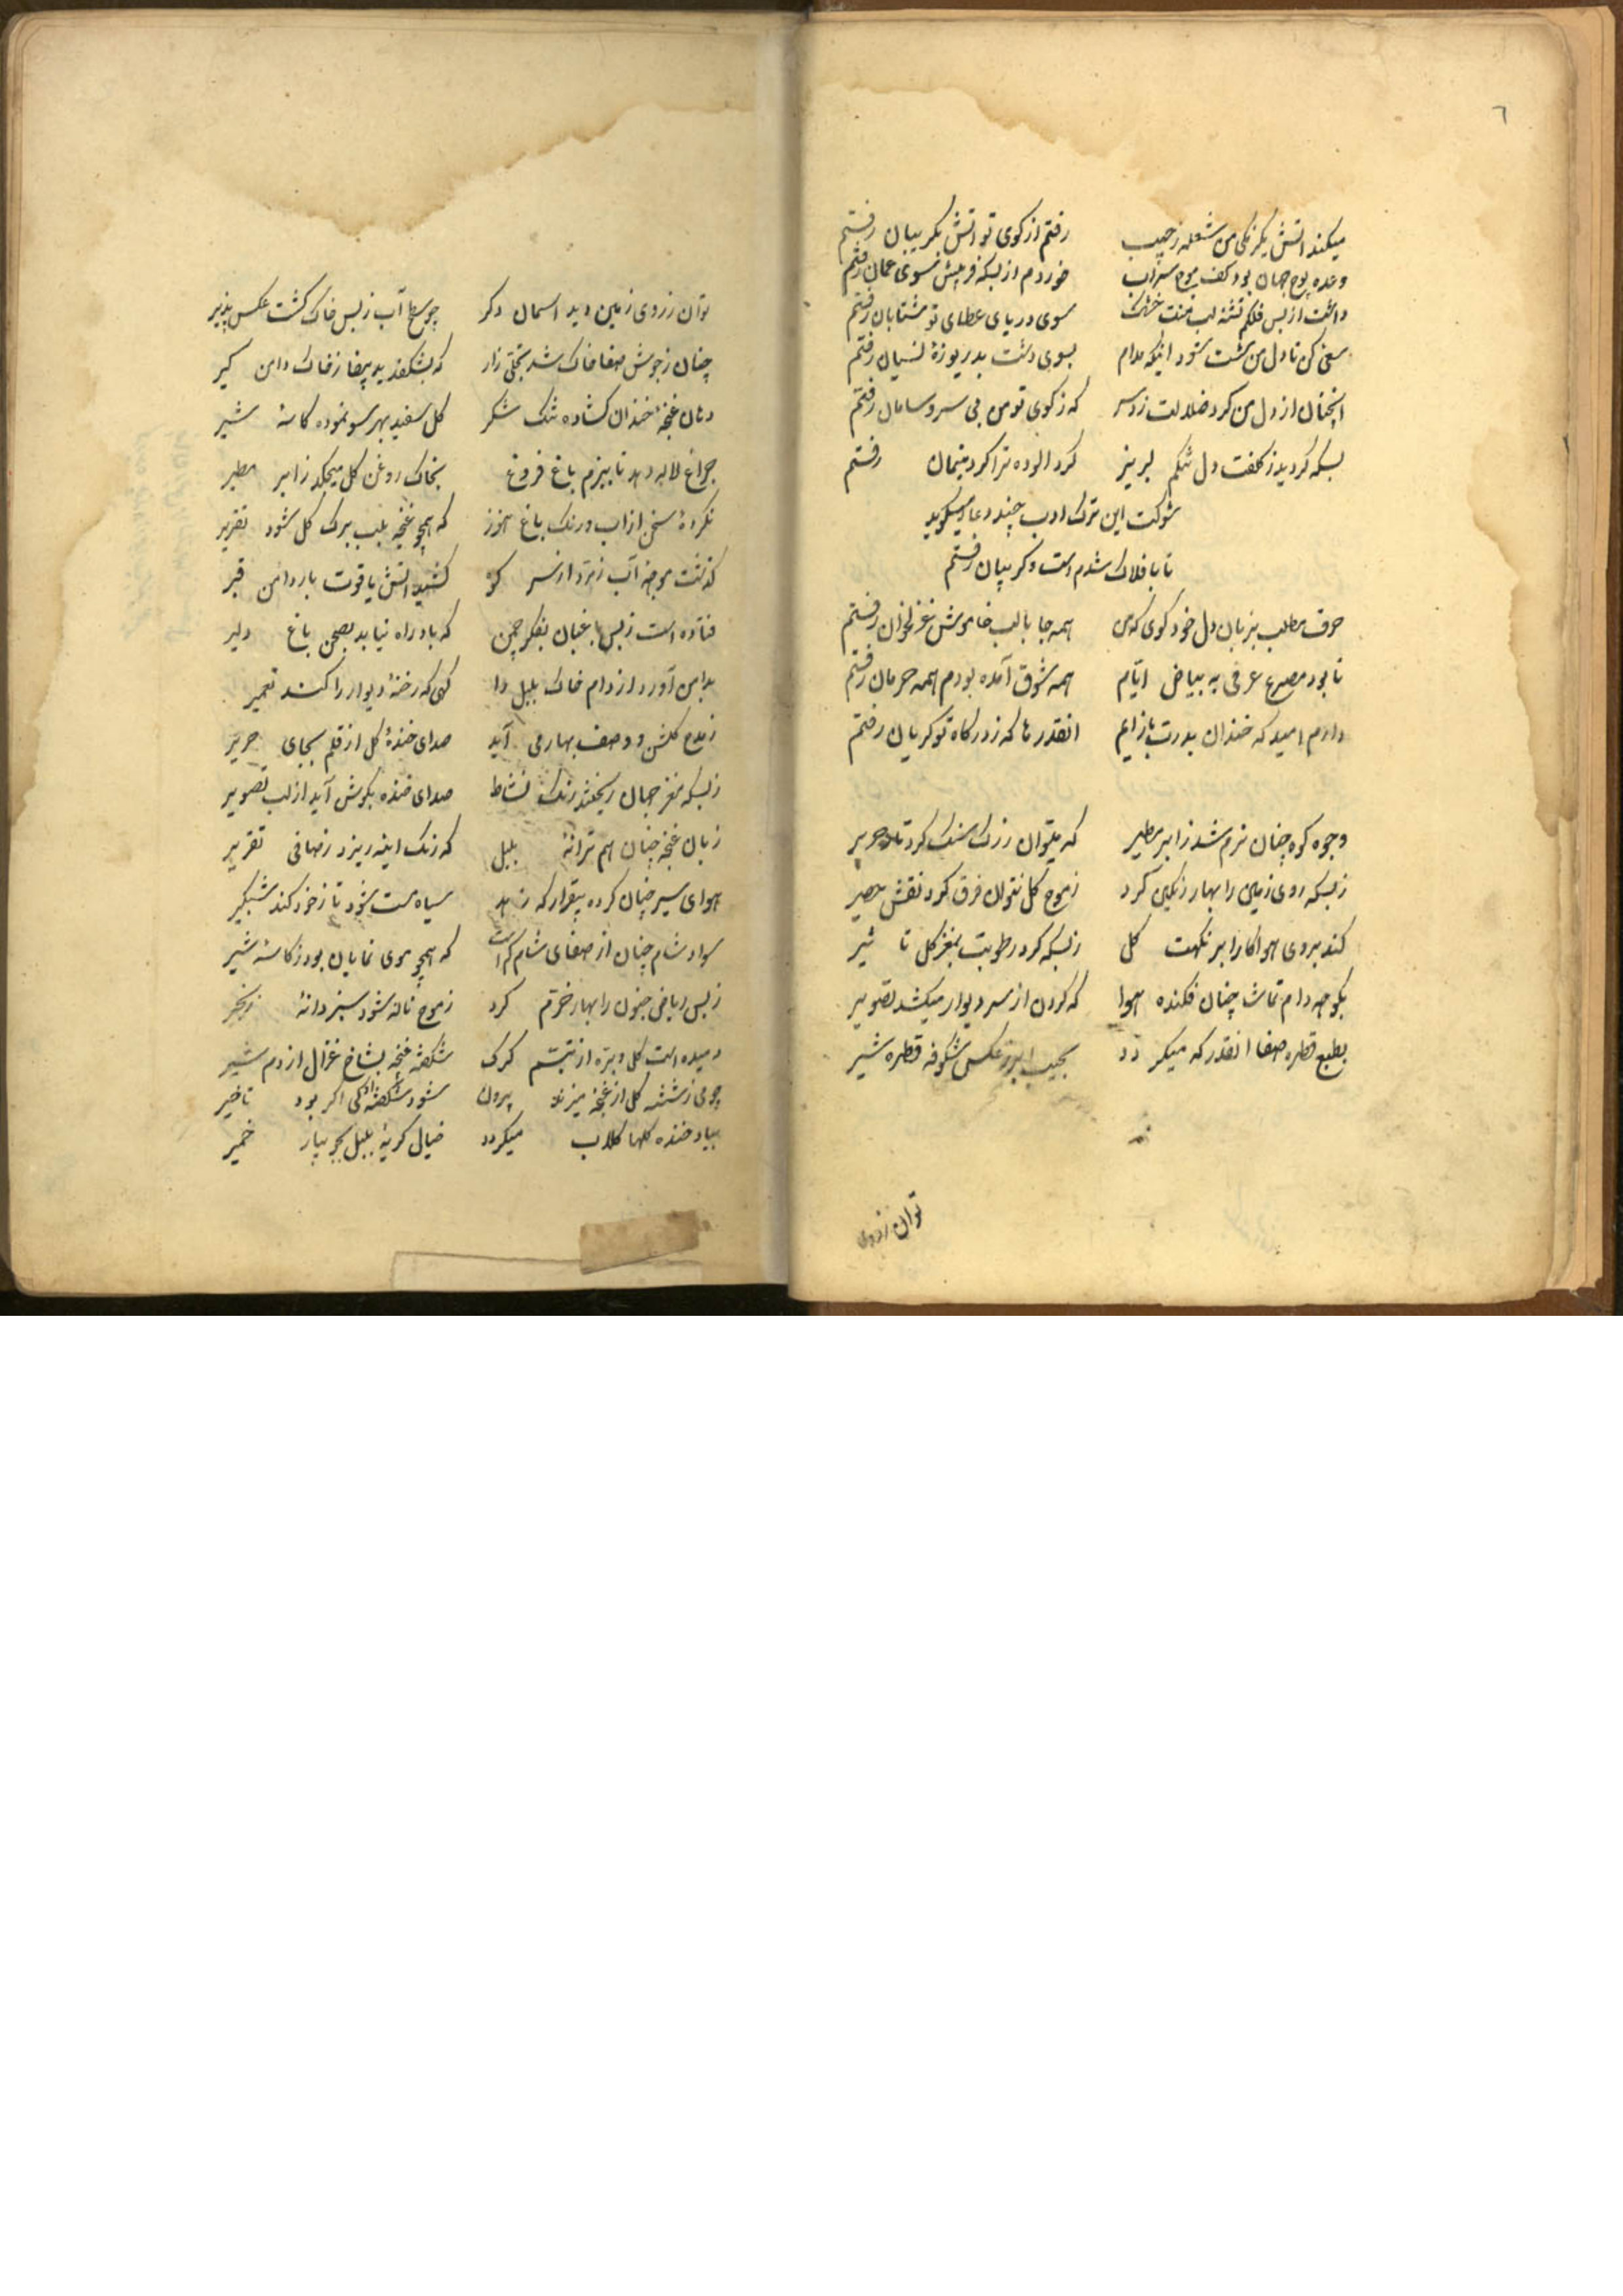 ٦
میکند اتش یکرنکی من شعله ز جیب رفتم از کوی تو اتش بکریبان رفتم
وعده پوچ جهان بود کف موج سراب خوردم از بسکه فریبش بسوی عمان رفتم
داشت از بس فلکم تشنه لب منت خشک سوی دریای عطای تو شتابان رفتم
سعی کن تا دل من شود اینکه مدام بسوی دشت بدریوزهٔ نسیان رفتم
انچنان از دل من کرد ضلالت زد سر که ز کوی تو من بی سر و سامان رفتم
بسکه کردید ز کلفت دل تنکم لبریز کرد الوده ترا کرد یتیمان رفتم
شوکت این ترک ادب چند دعا میکوید
تا بافلاک شدم دست و کریبان رفتم
حرف مطلب بزبان دل خود کوی که من همه جا با لب خاموش غزلخوان رفتم
تا بود مصرع عرفی به بیاض ایّام همه شوق آمده بودم همه حرمان رفتم
دارم امید که خندان بدرت باز ایم انقدرها که ز درکاه تو کریان رفتم
وجود کوه چنان نرم شد ز ابر مطیر که میتوان ز رک سنک کرد تار حریر
ز بسکه روی زمین را بهار رنکین کرد ز موج کل نتوان فرق کرد نقش حصیر
کند بروی هوا کار ابر نکهت کل ز بسکه کرد رطوبت بمغز کل تا ثیر
بکوچه دام تماشا چنان فکنده هوا که کردن از سر دیوار میکشد تصویر
بطبع قطره صفا انقدر که میکر دد بجیب ابر ز عکس شکوفه قطره شیر
توان ز روی
توان ز روی زمین دید اسمان دکر چو سطح آب ز بس خاک کشت عکس پذیر
چنان ز جوش صفا خاک شد تجلی زار که بشکفد ید بیضا ز خاک دامن کیر
دهان غنچهٔ خندان کشاده تنک شکر کل سفید بهر سو نموده کاسهٔ شیر
چراغ لاله دهد تا ببزم باغ فروغ بخاک روغن کل میچکد ز ابر مطیر
نکردهٔ سخن از اب و رنک باغ هنوز که همچو غنچه بلب برک کل شود تقریر
کذشت موجهٔ آب زمرد از سر کوه کشید اتش یاقوت پا بدامن قیر
فتاده است ز بس باغبان بفکر چمن که باد راه نیابد بصحن باغ دلیر
بدامن آورد از دام خاک بلبل را کسی که رخنهٔ دیوار را کند تعمیر
ز مدح کلشن و وصف بهار می آید صدای خندهٔ کل از قلم بجای صریر
ز بسکه مغز جهان ریختند رنک نشاط صدای خنده بکوش آید از لب تصویر
زبان غنچه چنان هم ترانهٔ بلبل که زنک اینه ریزد ز صافی تقریر
هوای سیر چنان کرده بیقرار که زاهد سیاه مست شود تا ز خود کند شبکیر
سواد شام چنان از صفای شام کم است که همچو موی نمایان بود ز کاسهٔ شیر
ز بس ریاض جنون را بهار خرّم کرد ز موج ناله شود سبز دانهٔ زنجیر
دمیده است کل و بتره از تبسّم کرک شکفته غنچه بشاخ غزال از دم شیر
چو می ز شیشه کل از غنچه میزند بیرون شود شکفته اکر بود تاخیر
بیاد خنده کلها کلاب میکردد خیال کریهٔ بلبل خمیر